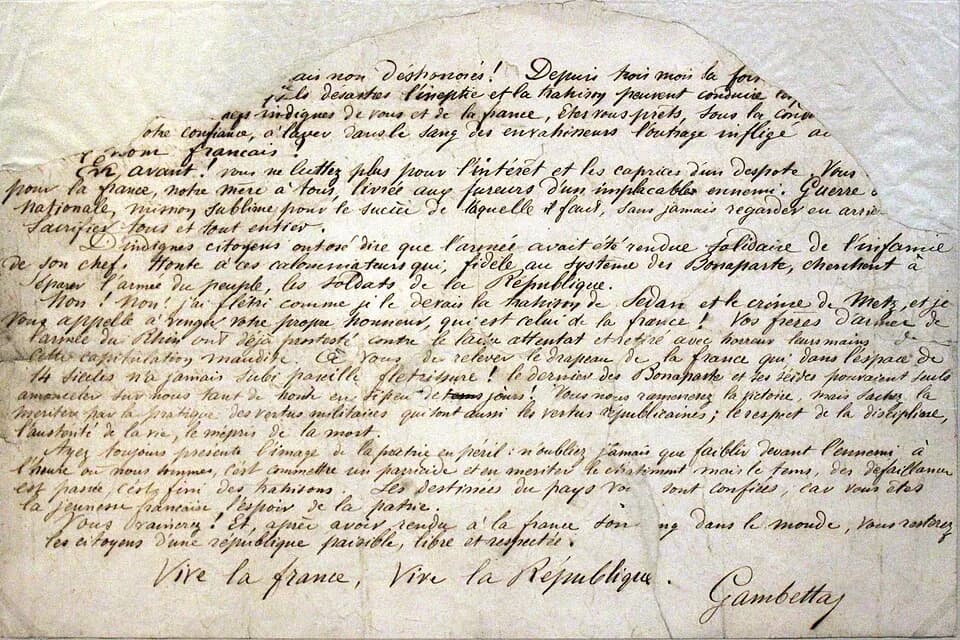 ais non déshonorés! Depuis trois mois la for
quels désastres l'ineptie et la trahison peuvent conduire
indignes de vous et de la france, êtes vous prêts, sous la con
otre confiance, à laver dans le sang des envahisseurs l'outrage infligé au
nom français!
En avant! vous ne luttez plus pour l'intérêt et les caprices d'un despote. Vous
pour la france, notre mère à tous, livrée aux fureurs d'un implacable ennemi. Guerre
Nationale, mission sublime pour le succès de laquelle il faut, sans jamais regarder en arriè
Sacrifier tous et tout entier.
D'indignes citoyens ont osé dire que l'armée avait été rendue solidaire de l'infamie
de son chef. Honte à ces calomniateurs qui, fidèle au système des Bonaparte, cherchent à
Séparer l'armée du peuple, les soldats de la République.
Non! Non! j'ai flétri comme je le devais la trahison de Sedan et le crime de Metz, et je
vous appelle à venger votre propre honneur, qui est celui de la france! Vos frères d'armes de
l'armée du Rhin ont déjà protesté contre le lâche attentat et retiré avec horreur leurs mains de
Cette capitulation maudite. A vous de relever le drapeau de la france qui dans l'espace de
14 siècles n'a jamais subi pareille flétrissure! le dernier des Bonaparte et ses séides pouvaient seuls
amonceler sur nous tant de honte en si peu de jours! Vous nous ramenerez la victoire, mais sachez la
meriter par la pratique des vertus militaires qui sont aussi les vertus républicaines; le respect de la discipline,
l'austérité de la vie, le mépris de la mort.
Ayez toujours présente l'image de la patrie en péril: n'oubliez jamais que faiblir devant l'ennemi à
l'heure où nous sommes, c'est commettre un parricide et en meriter le châtiment mais le tems, des défaillances
est passé, c'est fini des trahisons. Les destinées du pays vo sont confiées, car vous êtes
la jeunesse française, l'espoir de la patrie.
Vous vaincrez! Et, après avoir rendu à la france son ng dans le monde, vous resterez
les citoyens d'une république paisible, libre et respectée.
Vive la france, Vive la République.
Gambetta